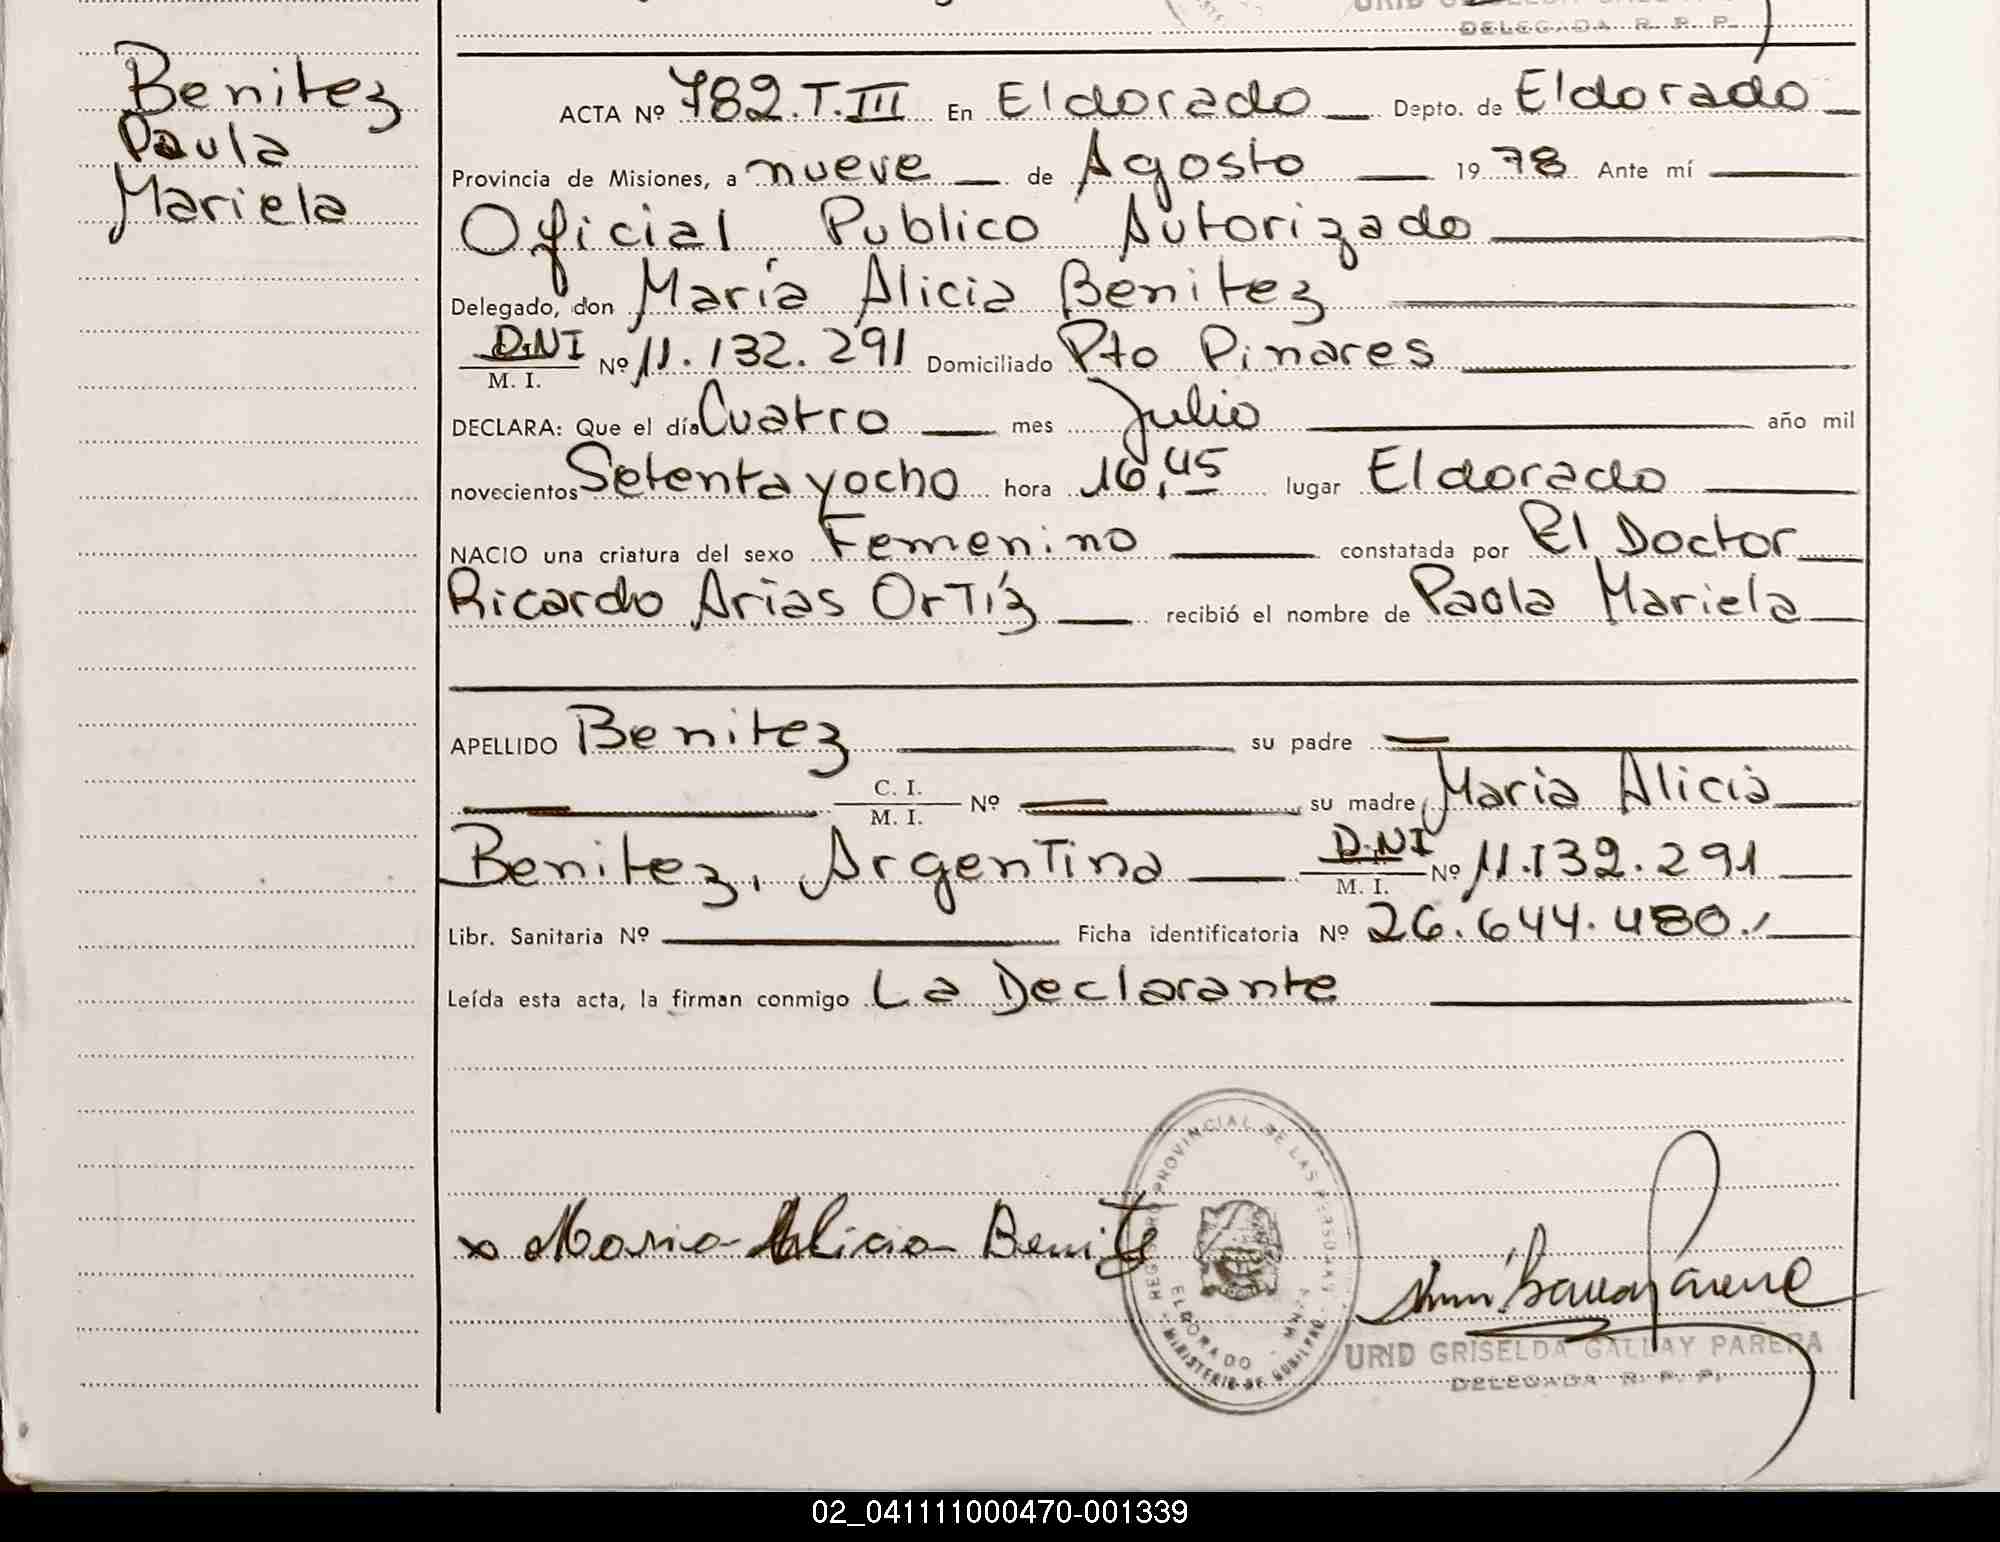 DELEGADA R. P. P.
Benitez
Paula
Mariela
ACTA Nº 782.T.III En Eldorado Depto. de Eldorado
Provincia de Misiones, a nueve de Agosto 1978 Ante mí
Oficial Publico Autorizado
Delegado, don María Alicia Benitez
D.NI
M. I. Nº 11.132.291 Domiciliado Pto Pinares
DECLARA: Que el día Cuatro mes Julio año mil
novecientos Setenta y ocho hora 16,45 lugar Eldorado
NACIO una criatura del sexo Femenino constatada por El Doctor
Ricardo Arias Ortíz recibió el nombre de Paola Mariela
APELLIDO Benitez su padre
C. I.
M. I. Nº su madre Maria Alicia
Benitez, Argentina D.NI
M. I. Nº 11.132.291
Libr. Sanitaria Nº Ficha identificatoria Nº 26.644.480.-
Leída esta acta, la firman conmigo La Declarante
x Maria Alicia Benitez
REGISTRO PROVINCIAL DE LAS PERSONAS
ELDORADO - MNES
MINISTERIO DE GOBIERNO
URID GRISELDA GALLAY PARERA
DELEGADA R. P. P.
02_041111000470-001339